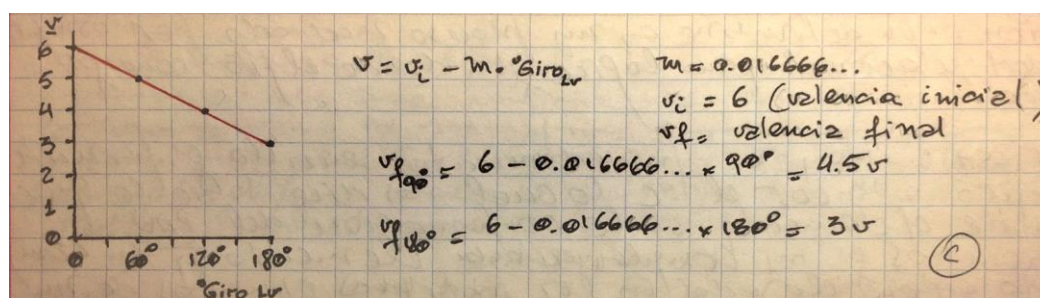 v
6
5
4
3
2
1
0
0 60° 120° 180°
°Giro Lv
v = vi - m. °Giro Lv
m = 0.016666...
vi = 6 (valencia inicial)
vf = valencia final
vf90° = 6 - 0.016666... x 90° = 4.5v
vf180° = 6 - 0.016666... x 180° = 3v
C